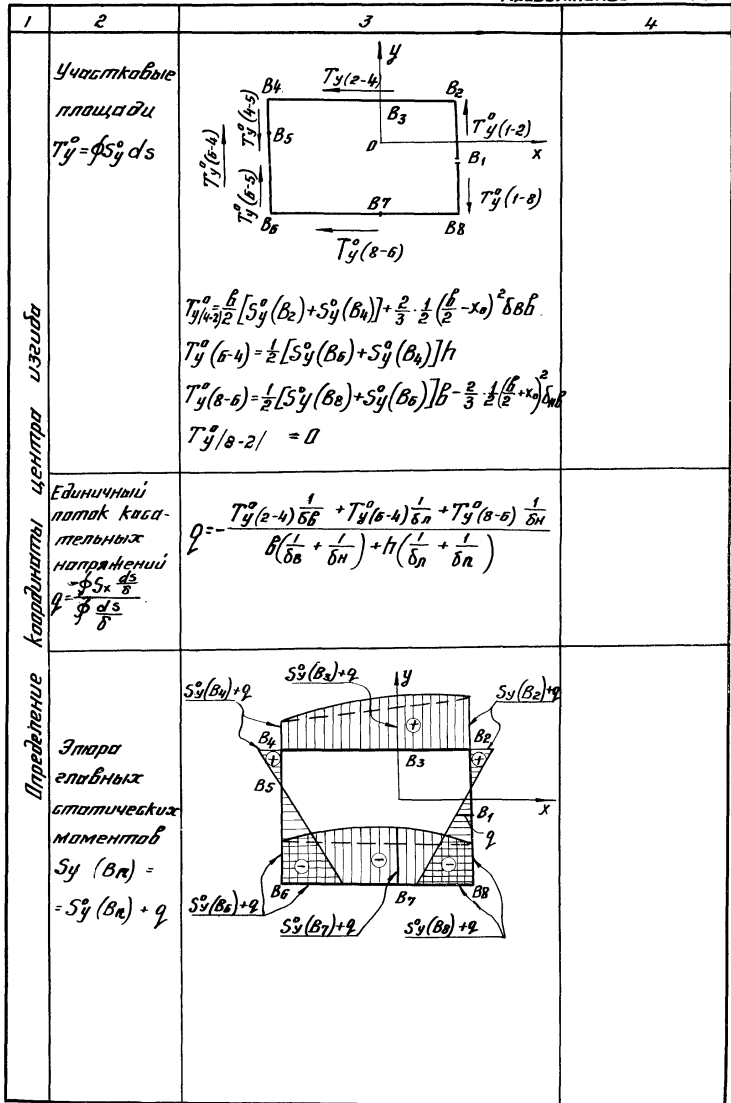 1 2 3 4
Определение координаты центра изгиба
Участковые
площади
T_y^o = ∮S_y^o ds
y
T_y(2-4)
B4
B2
B3
T_y^o(4-5)
T_y^o(1-2)
B5
0
x
B1
T_y^o(6-4)
T_y^o(6-5)
T_y^o(1-8)
B7
B6
B8
T_y^o(8-6)
T_y^o/4-2/ = в/2 [S_y^o(B2) + S_y^o(B4)] + 2/3 · 1/2 (в/2 - x₀)² δвв
T_y^o(6-4) = 1/2 [S_y^o(B6) + S_y^o(B4)]h
T_y^o(8-6) = 1/2 [S_y^o(B8) + S_y^o(B6)]в - 2/3 · 1/2 (в/2 + x₀)² δнв
T_y^o/8-2/ = 0
Единичный
поток каса-
тельных
напряжений
q = -∮Sx ds/δ / ∮ ds/δ
q = - (T_y^o(2-4) 1/δв + T_y^o(6-4) 1/δл + T_y^o(8-6) 1/δн) / (в(1/δв + 1/δн) + h(1/δл + 1/δп))
Эпюра
главных
статических
моментов
Sy (Bn) =
= S_y^o (Bn) + q
S_y^o(B4)+q
S_y^o(B3)+q
y
Sy(B2)+q
+
B4
B2
+
B3
+
B5
B1
x
q
-
-
-
B6
B7
B8
S_y^o(B6)+q
S_y^o(B7)+q
S_y^o(B8)+q